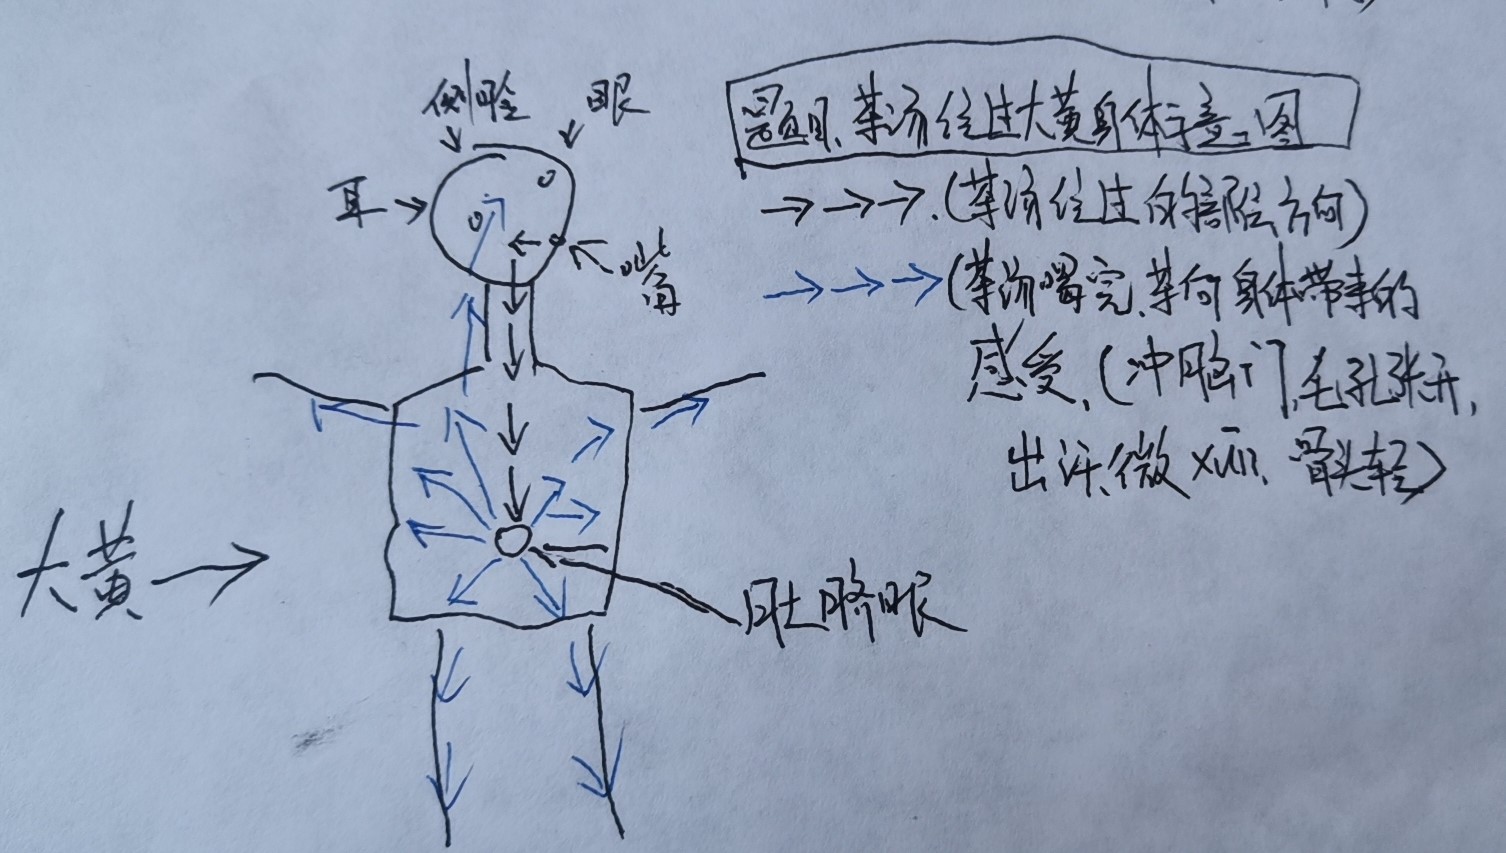 侧脸 眼
耳
嘴角
大黄
肚脐眼
题目、茶汤经过大黄身体示意图
(茶汤经过的部位方向)
(茶汤喝完、茶向身体带来的
感受、(冲脑门、毛孔张开、
出汗、微 骨头轻)